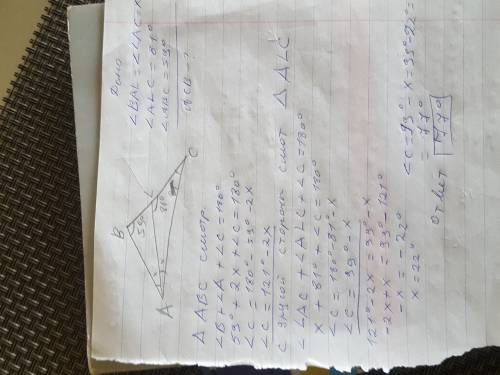 Дано
∠BAL = ∠LAC = x
∠ALC = 81°
∠ABC = 59°
∠ACB - ?
B
59°
L
81°
C
A
Δ ABC смотр.
∠B + ∠A + ∠C = 180°
59° + 2x + ∠C = 180°
∠C = 180° - 59° - 2x
∠C = 121° - 2x
С другой стороны смот Δ ALC
∠LAC + ∠ALC + ∠C = 180°
x + 81° + ∠C = 180°
∠C = 180° - 81 - x
∠C = 99° - x
121° - 2x = 99 - x
-2x + x = 99° - 121°
-x = -22°
x = 22°
∠C = 99° - x = 99° - 22° =
= 77°
Ответ 77°